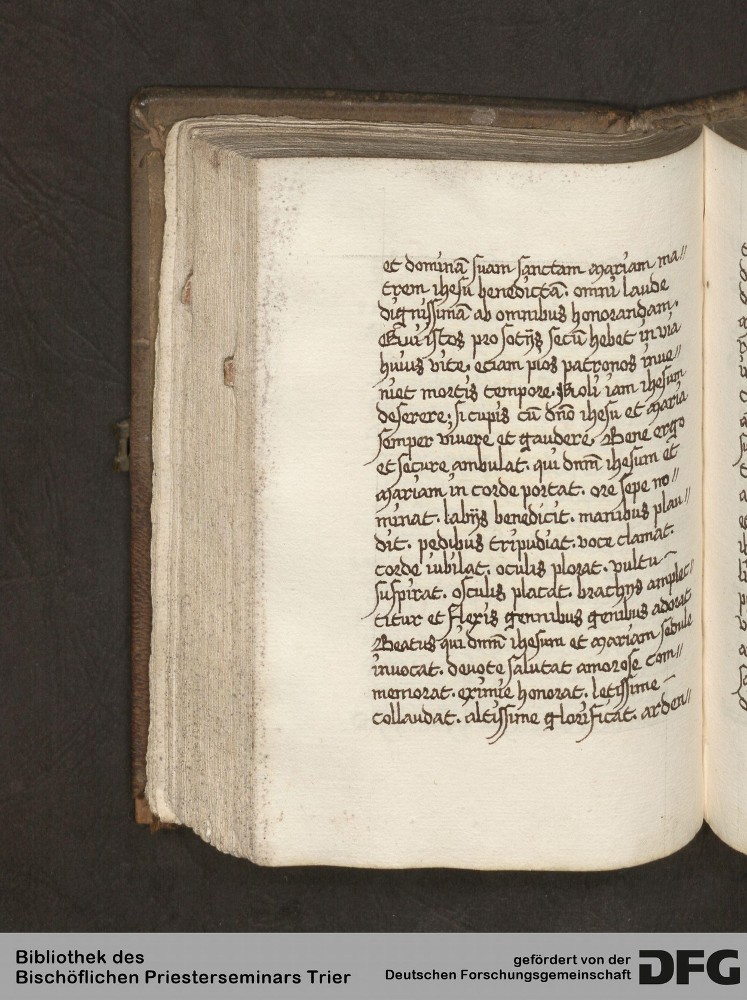 et dominā suam sanctam mariam ma//
trem ihesu benedictā. omni laude
dignissimā ab omnibus honorandam.
Qui istos pro sotijs secū hebet in via
huius vite. eciam pios patronos inue//
niet mortis tempore. Noli iam ihesum
deserere; si cupis cū dño ihesu et maria
semper vivere et gaudere. Bene ergo
et secure ambulat. qui dnm̄ ihesum et
mariam in corde portat. ore sepe no//
minat. labijs benedicit. manibus plau//
dit. pedibus tripudiat. voce clamat.
corde iubilat. oculis plorat. vultu
suspirat. osculis placat. brachijs amplec//
titur et flexis gennibus genibus adorat
Beatus qui dnm̄ ihesum et mariam sedule
invocat. devote salutat amorose com//
memorat. eximie honorat. letissime
collaudat. altissime glorificat. arden//
Bibliothek des
Bischöflichen Priesterseminars Trier
gefördert von der
Deutschen Forschungsgemeinschaft
DFG